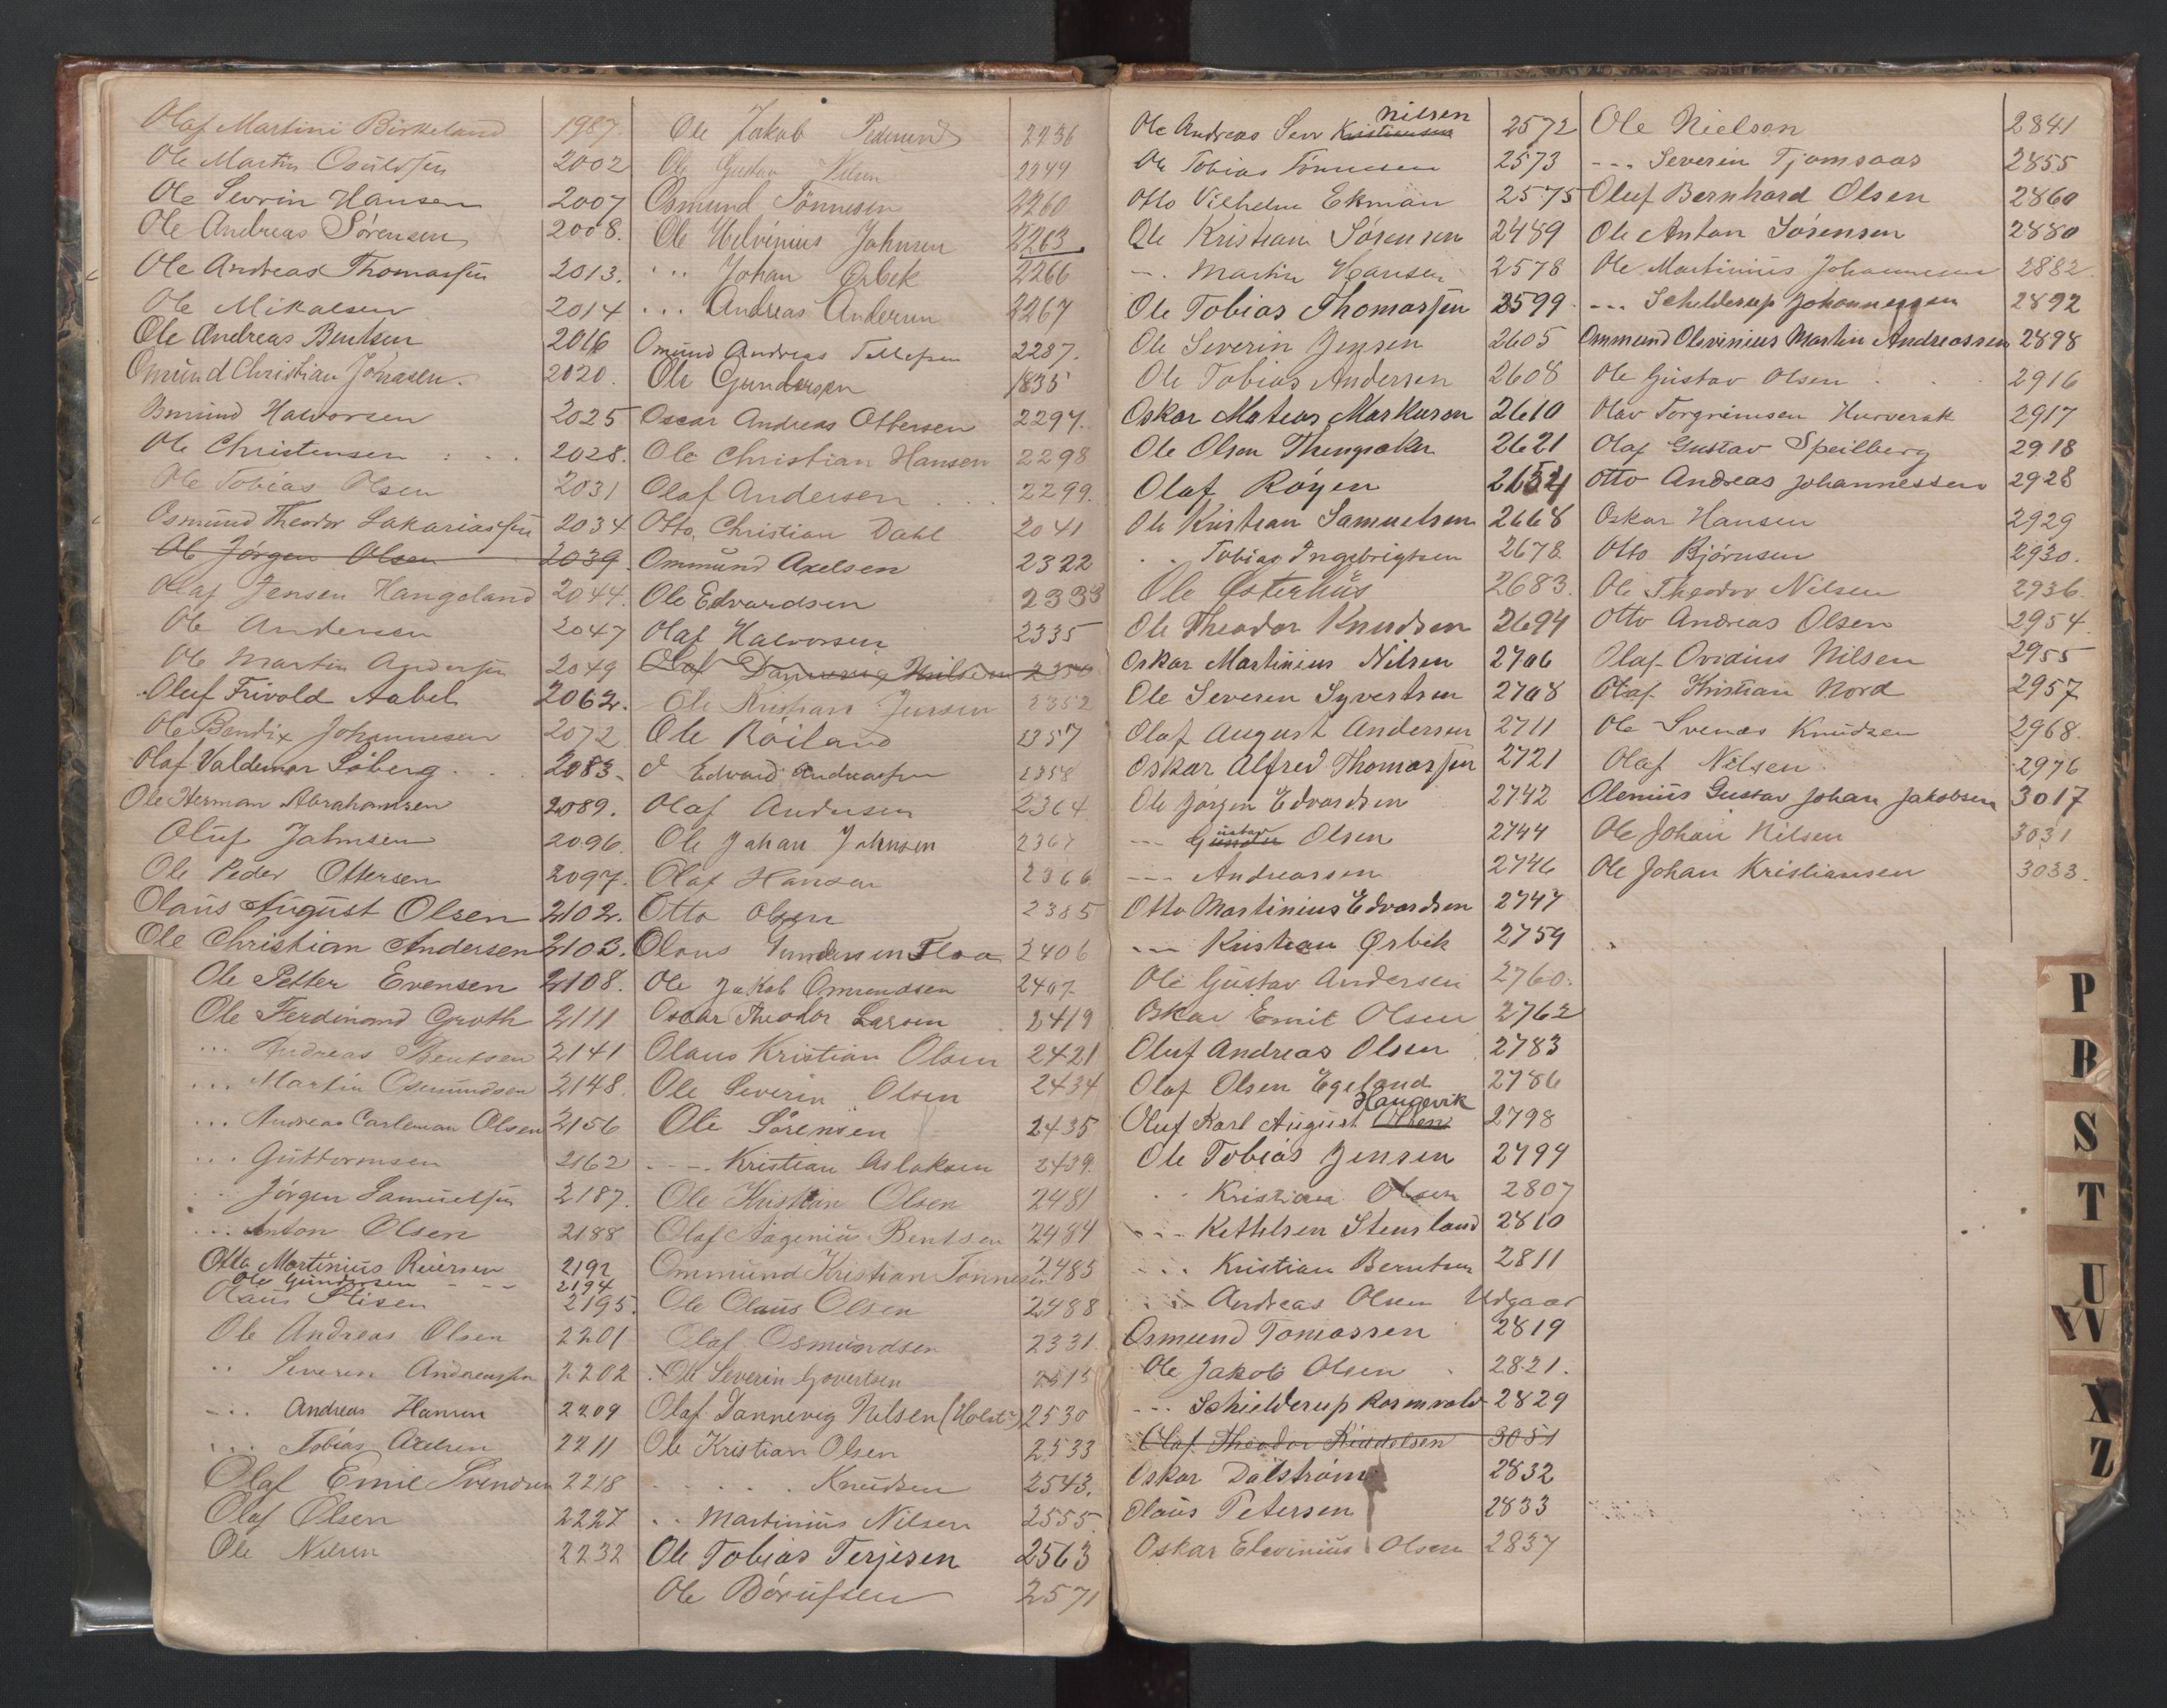 Olaf Martini Birkeland 1987.
Ole Martin Osuldsen 2002
Ole Sevrin Hansen 2007
Ole Andreas Sørensen 2008.
Ole Andreas Thomassen 2013.
Ole Mikalsen 2014
Ole Andreas Bentsen 2016
Omund Christian Johnasen. 2020.
Osmund Halvorsen 2025
Ole Christensen . . . 2028.
Ole Tobias Olsen 2031
Osmund Theodor Sakariassen 2034
Ole Jørgen Olsen 2039.
Olaf Jensen Hangeland 2044.
Ole Andersen 2047
Ole Martin Andersen 2049
Oluf Frivold Aabel 2062.
Ole Bendix Johannesen 2072
Olaf Valdemar Søberg . . 2083.
Ole Herman Abrahamsen 2089.
Oluf Jahnsen 2096.
Ole Peder Ottersen 2097.
Olaus August Olsen 2102.
Ole Christian Andersen 2103.
Ole Petter Evensen 2108.
Ole Ferdinand Groth 2111
... Andreas Bentsen 2141
... Martin Osmundsen 2148.
... Andreas Carleman Olsen 2156
... Guttormsen 2162
.. Jörgen Samuelsen 2187.
... Anton Olsen 2188
Otto Martinius Reiersen 2192
Ole Gundersen - - - 2194
Olaus Stisen 2195.
Ole Andreas Olsen 2201
.. Severin Andreassen 2202
... Andreas Hansen 2209
... Tobias Axelsen 2211
Olaf Emil Svendsen 2218
Olaf Olsen 2227
Ole Nilsen 2232
Ole Jakob Pedersen 2236
Ole Gustav Nilsen 2249
Osmund Tönnesen 2260
Ole Helvinius Johnsen 2263
... Johan Ørbek 2266
... Andreas Andersen 2267
Omund Andreas Tellefsen 2287.
Ole Gundersen 1835
Oscar Andreas Ottersen 2297.
Ole Christian Hansen 2298
Olaf Andersen . . . 2299.
Otto Christian Dahl 2041
Ommund Axelsen 2322
Ole Edvardsen 2333
Olaf Halvorsen 2335
Olaf Dannevig Nilsen 2350
Ole Kristian Jensen 2352
Ole Röiland 2357
O Edvard Andreassen 2358
Olaf Andersen 2364
Ole Johan Johnsen 2367
Olaf Hansen 2366
Otto Olsen 2385
Olaus Gundersen Floa 2406
Ole Jakob Omundsen 2407
Oscar Theodor Larsen . 2419
Olaus Kristian Olsen 2421
Ole Severin Olsen 2434
Ole Sörensen 2435
. - -. Kristian Aslaksen 2439.
Ole Kristian Olsen 2481
Olaf Aagenius Bentsen 2484
Ommund Kristian Tönnesen 2485
Ole Olaus Olsen 2488
Olaf Osmundsen 2331.
Ole Severin Govertsen 2515
Olaf Dannevig Nilsen (Holst) 2530
Ole Kristian Olsen 2533
. . . . . Knudsen 2543.
. . Martinius Nilsen 2555.
Ole Tobias Terjesen 2563
Ole Börufsen 2571
Nilsen
Ole Andreas Sevr Kristensen 2572
Ole Tobias Tönnesen 2573
Otto Vilhelm Ekman 2575
Ole Kristian Sörensen 2489
-. Martin Hansen 2578
Ole Tobias Thomassen 2599.
Ole Severin Jensen 2605
Ole Tobias Andersen 2608
Oskar Mateas Markuson 2610
Ole Olsen 2621
Olaf Röyen 2654
Ole Kristian Samuelsen 2668
. . Tobias Ingebrigtsen 2678.
Ole Østerhus 2683.
Ole Theodor Knudsen 2694
Oskar Martinius Nilsen 2706
Ole Severin Syvertsen 2708
Olaf August Andersen 2711
Oskar Alfred Thomassen 2721
Ole Jörgen Edvardsen 2742
ustav
--- Gunder Olsen 2744
--- Andreassen 2746
Otto Martinius Edvardsen 2747
--- Kristian Ørbek 2759
Ole Gustav Andersen 2760.
Oskar Emil Olsen 2762
Oluf Andreas Olsen 2783
Olaf Olsen Egeland 2786
Haugevik
Oluf Karl August Olsen 2798
Ole Tobias Jensen 2799
. . Kristian Olsen 2807
. - - Kettelsen Stensland 2810
. . . Kristian Berntsen 2811
. . . Andreas Olsen Udgaar
Osmund Tomassen 2819
Ole Jakob Olsen . 2821.
--- Schielderup Rosenvold 2829
Olaf Theodor Kiddelsen 3051
Oskar Dalström 2832
Olaus Petersen 2833
Oskar Elevinius Olsen 2837
Ole Nielsen 2841
--- Severin Tjomsaas 2855
Oluf Bernhard Olsen 2860
Ole Anton Sörensen 2880
Ole Martinius Johannesen 2882.
--- Schelderup Johannessen 2892
Ommund Olivinius Martin Andreassen 2898
Ole Gustav Olsen . . . 2916
Olav Torgrimsen Hurverak 2917
Olaf Gustav Speilberg 2918
Otto Andreas Johannessen 2928
Oskar Hansen 2929
Otto Björnsen 2930.
Ole Theodor Nilsen 2936.
Otto Andreas Olsen 2954.
Olaf Ovidius Nilsen 2955
Olaf Kristian Nord 2957
Ole Svenes Knudsen 2968.
Olaf Nilsen 2976
Olenius Gustav Johan Jakobsen 3017
Ole Johan Nilsen 3031
Ole Johan Kristiansen 3033.
P
R
S
T
U
W
X
Z